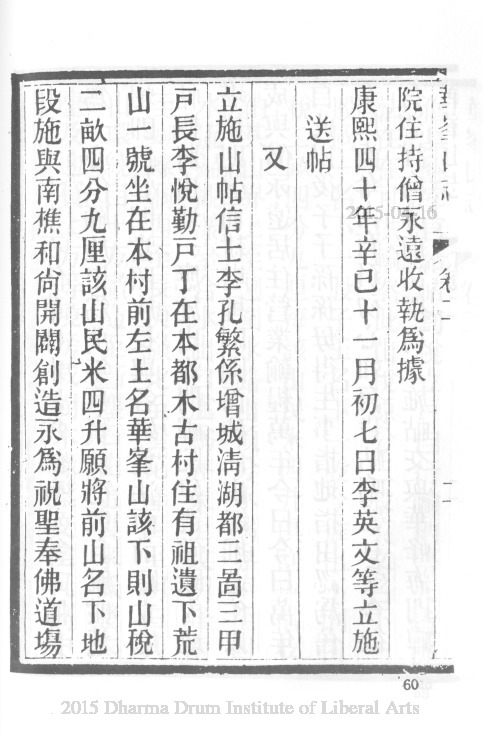 華峯山志 卷二 十一
院住持僧永遠收執爲據
康熙四十年辛巳十一月初七日李英文等立施
送帖
又
立施山帖信士李孔繁係增城淸湖都三啚三甲
戸長李悅勤戸丁在本都木古村住有祖遺下荒
山一號坐在本村前左土名華峯山該下則山稅
二畝四分九厘該山民米四升願將前山名下地
段施與南樵和尙開闢創造永爲祝聖奉佛道場
2015-04-16
60
2015 Dharma Drum Institute of Liberal Arts